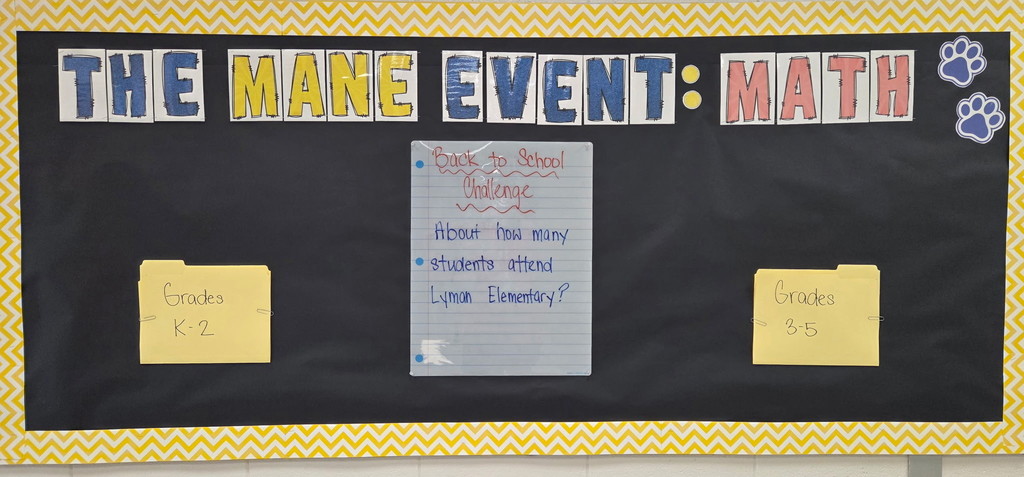 THE MANE EVENT: MATH
Back to School
Challenge
About how many
students attend
Lyman Elementary?
Grades
K-2
Grades
3-5